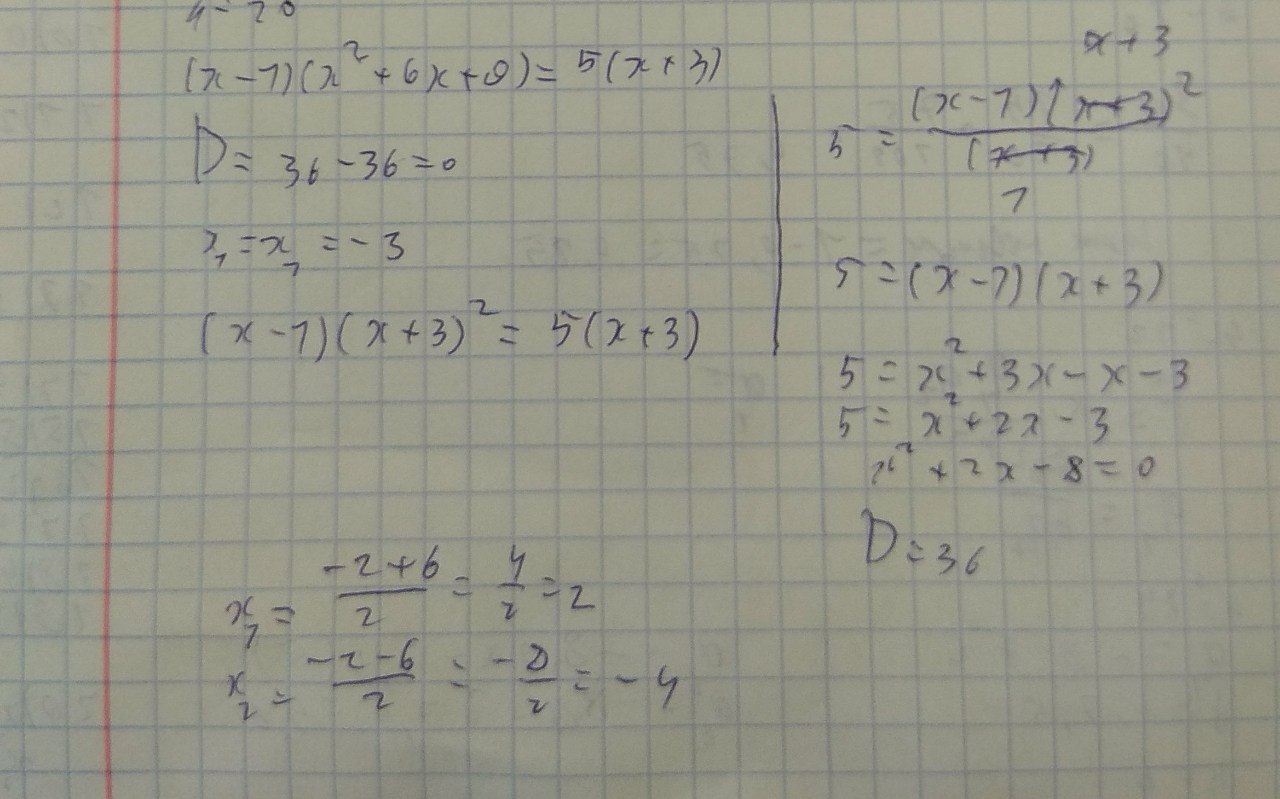 (x-1)(x²+6x+9)=5(x+3)
D=36-36=0
x₁=x₁=-3
(x-1)(x+3)²=5(x+3)
x+3
5=(x-1)(x+3)²/(x+3)
1
5=(x-1)(x+3)
5=x²+3x-x-3
5=x²+2x-3
x²+2x-8=0
D=36
x₁=(-2+6)/2=4/2=2
x₂=(-2-6)/2=-8/2=-4